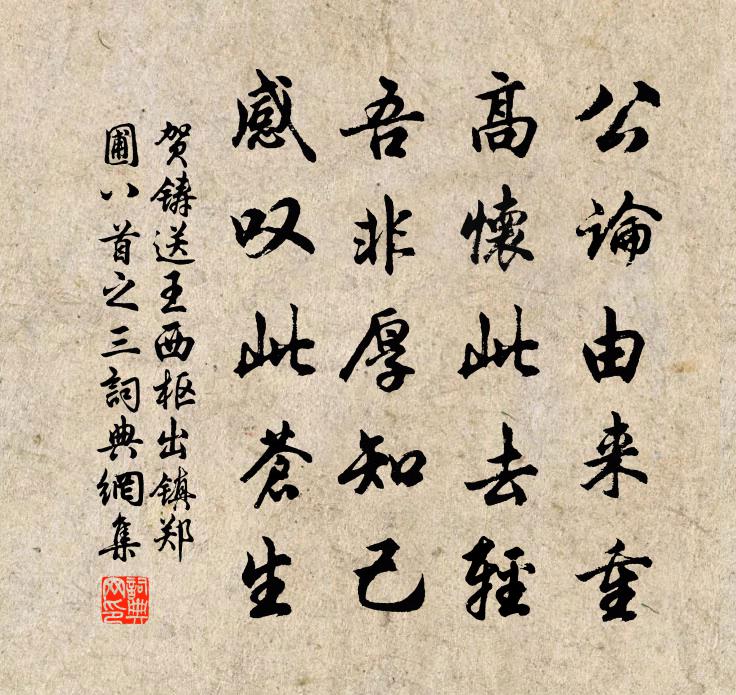 公論由来重
高懷此去輕
吾非厚知己
感叹此蒼生
贺鑄送王西枢出镇郑
圃八首之三詞典網集
詞典
网印